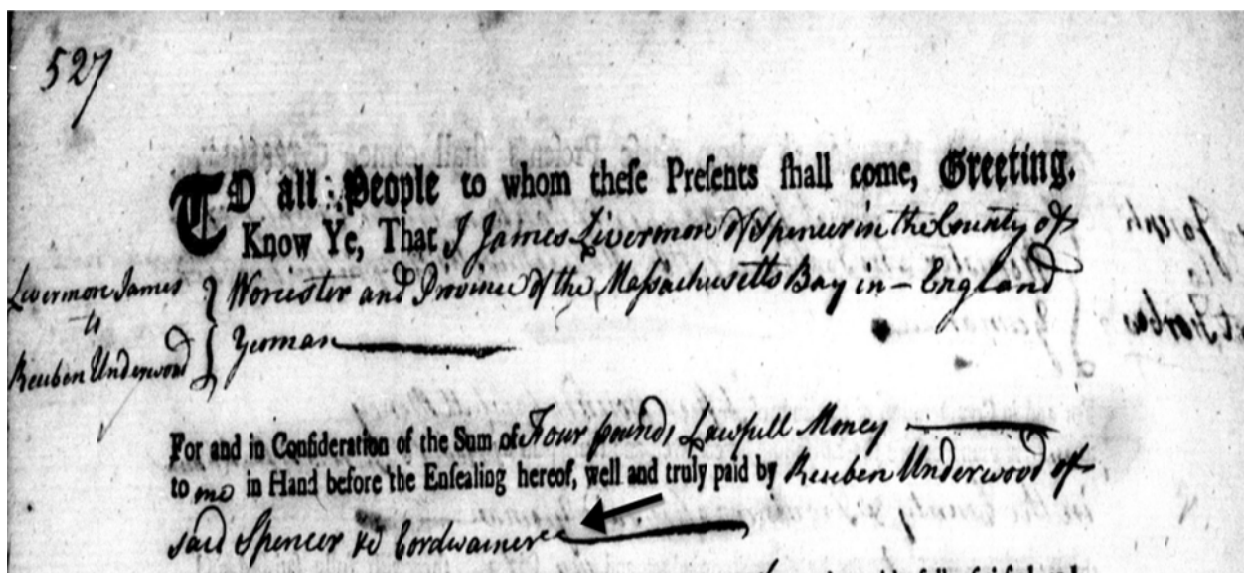 527
TO all People to whom these Presents shall come, Greeting.
Know Ye, That I James Livermore of Spencer in the County of
Livermore James
to
Reuben Underwood
Worcester and Province of the Massachusetts Bay in – England
Yeoman
For and in Consideration of the Sum of Four pounds Lawfull Money
to me in Hand before the Ensealing hereof, well and truly paid by Reuben Underwood of
said Spencer &c Cordwainer